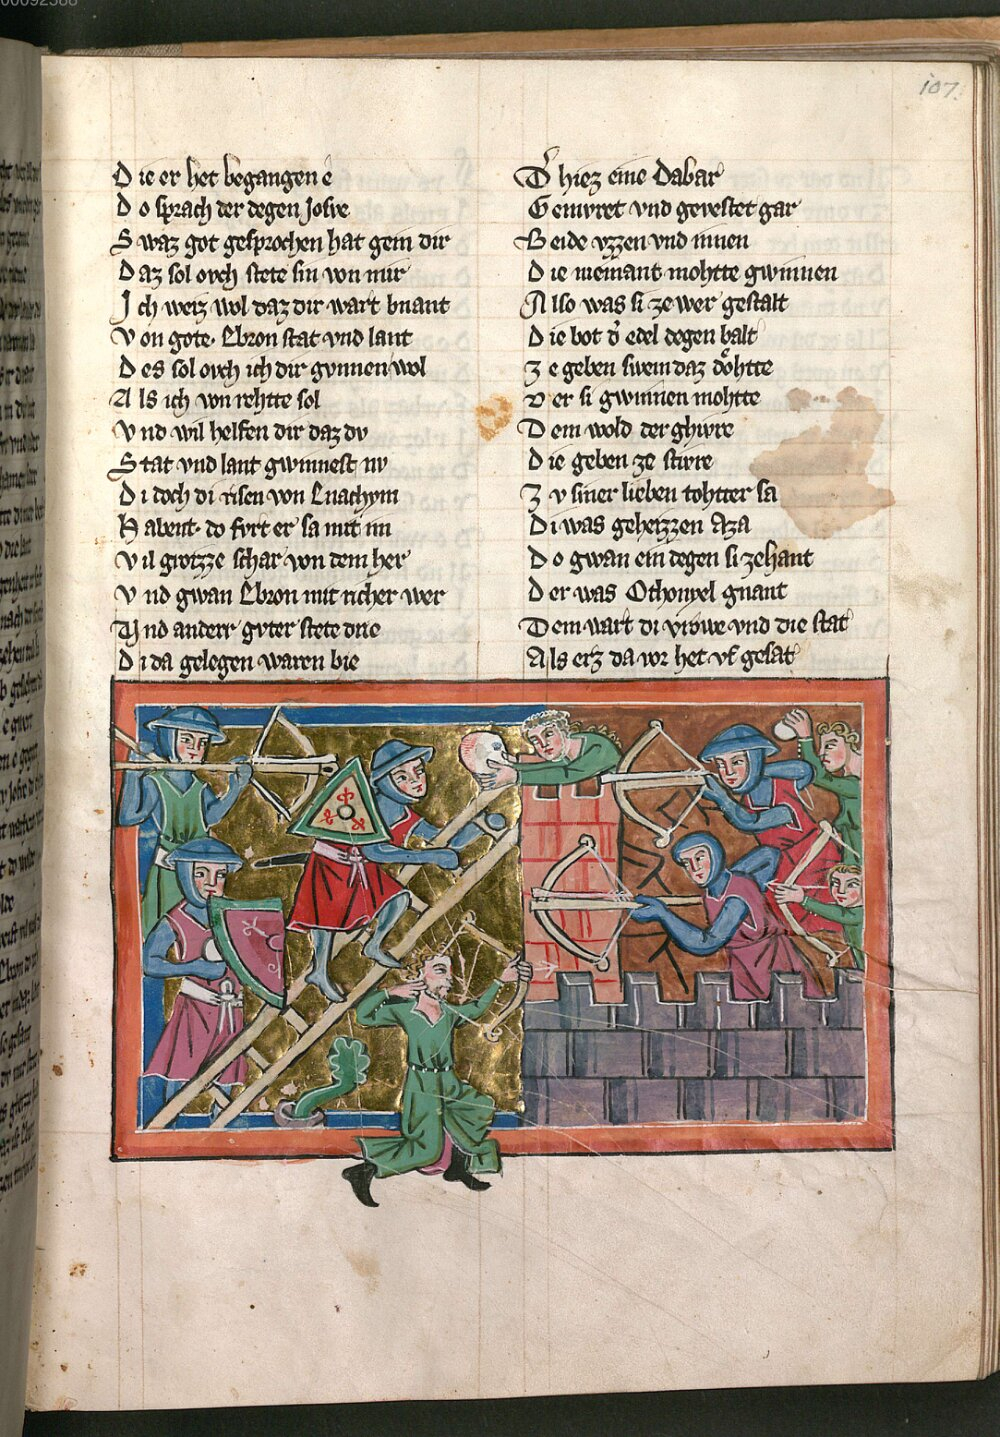 00092588
107.
Die er het begangen è
Do sprach der degen Josve
Swaz got gesprochen hat gein dir
Daz sol ovch stete sin von mir
Ich weiz wol daz dir wart bnant
Von gote. Ebron stat vnd lant
Des sol ovch ich dir gvnnen wol
Als ich von rehtte sol
Vnd wil helfen dir daz dv
Stat vnd lant gwinnest nv
Di doch di risen von Enachym
Habent. do fvrt er sa mit im
Vil grozze schar von dem her
Vnd gwan Ebron mit richer wer
Vnd anderr gvter stete drie
Di da gelegen waren bie
Dˀ hiez eine Dabar
Gemvret vnd gevestet gar
Beide vzzen vnd innen
Die niemant mohtte gwinnen
Also was si ze wer gestalt
Die bot dˀ edel degen balt
Ze geben swem daz dohtte
Der si gwinnen mohtte
Dem wold der ghivre
Die geben ze stivre
Zv siner lieben tohtter sa
Di was geheizzen Aza
Do gwan ein degen si zehant
Der was Othonyel gnant
Dem wart di vrowe vnd die stat
Als erz da vor het vf gesat